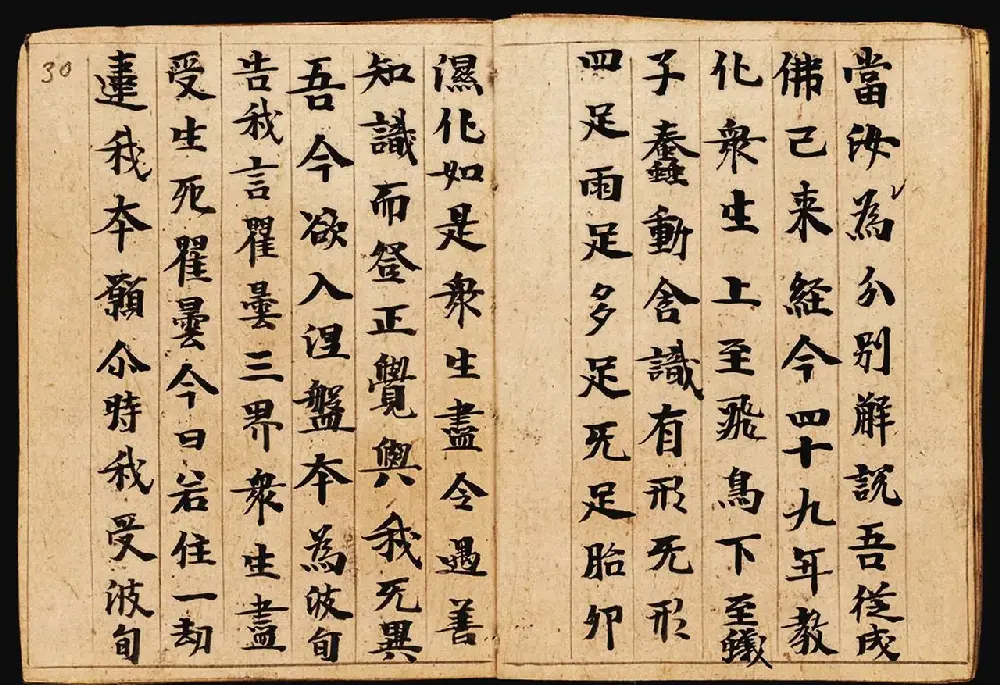 當汝為分別解說吾從成
佛已来経今四十九年教
化衆生上至飛鳥下至蟻
子蠢動含識有形无形
四足兩足多足无足胎卵
濕化如是衆生盡令遇善
知識而登正覺與我无異
吾今欲入涅盤本為波旬
告我言瞿曇三界衆生盡
受生死瞿曇今日若住一劫
違我本願尒時我受波旬
30